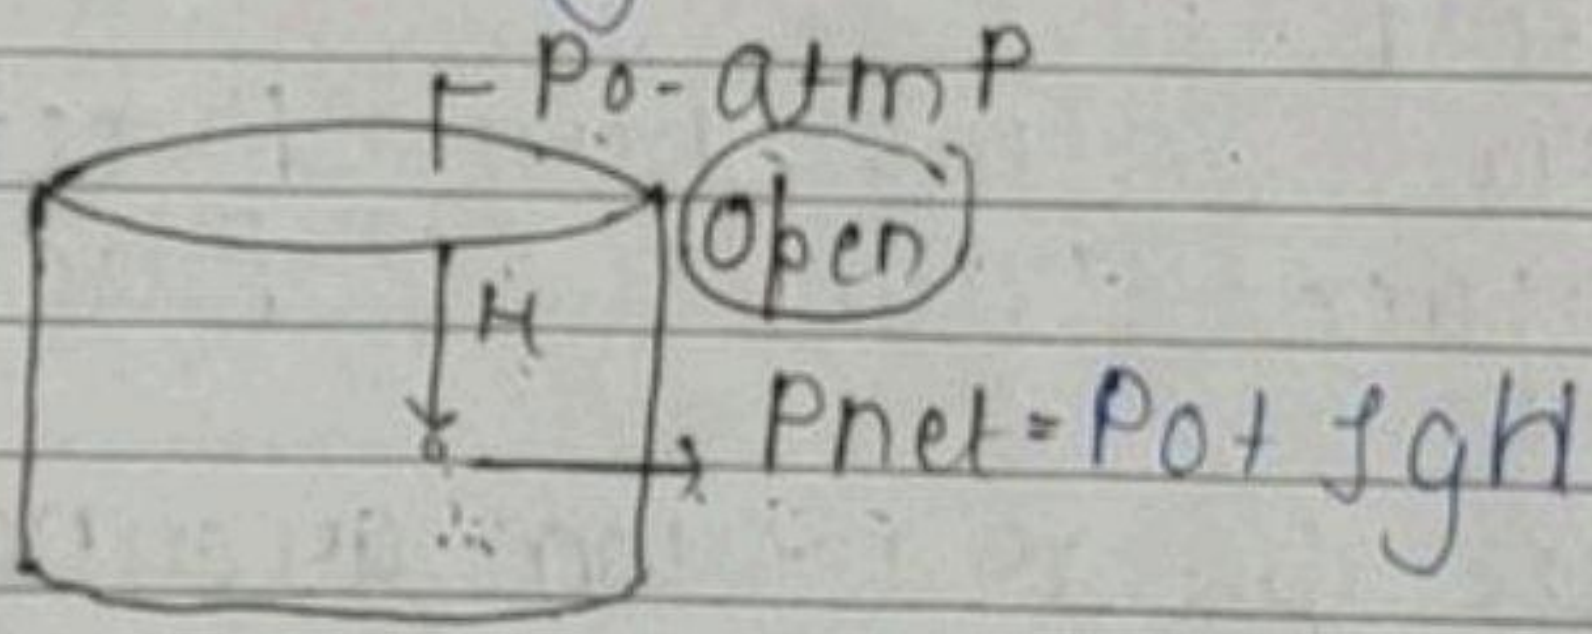 Po - atm P
Open
H
Pnet = Po + ρgH